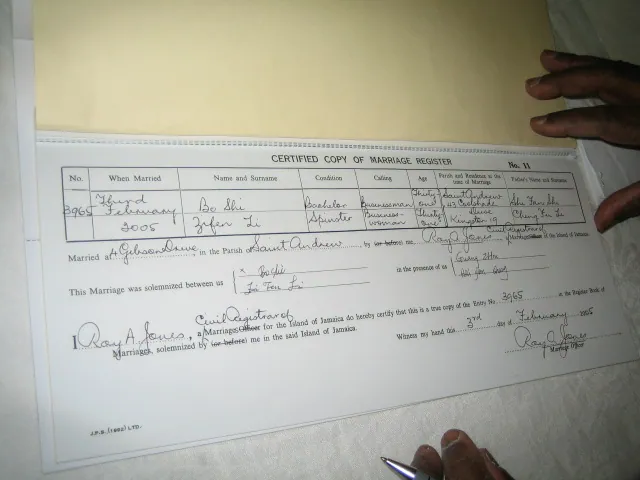 CERTIFIED COPY OF MARRIAGE REGISTER No. 11
No. When Married Name and Surname Condition Calling Age Parish and Residence at the time of Marriage Father's Name and Surname
3965 Third February 2005 Bo Shi Bachelor Businessman Thirty one Saint Andrew 43 Drive Kingston 19
Zifen Li Spinster Business-woman Thirty one Li
Married at 4 Gibson Drive, in the Parish of Saint Andrew, by (or before) me Roy A. Jones, Civil Registrar of Marriage Officer of the Island of Jamaica
This Marriage was solemnized between us x in the presence of us
I Roy A. Jones, a Civil Registrar of Marriage Officer for the Island of Jamaica do hereby certify that this is a true copy of the Entry No. 3965 in the Register Book of
Marriages, solemnized by (or before) me in the said Island of Jamaica. Witness my hand this 3rd day of February 2005
Roy A. Jones
Marriage Officer
J.P.S. (1992) LTD.